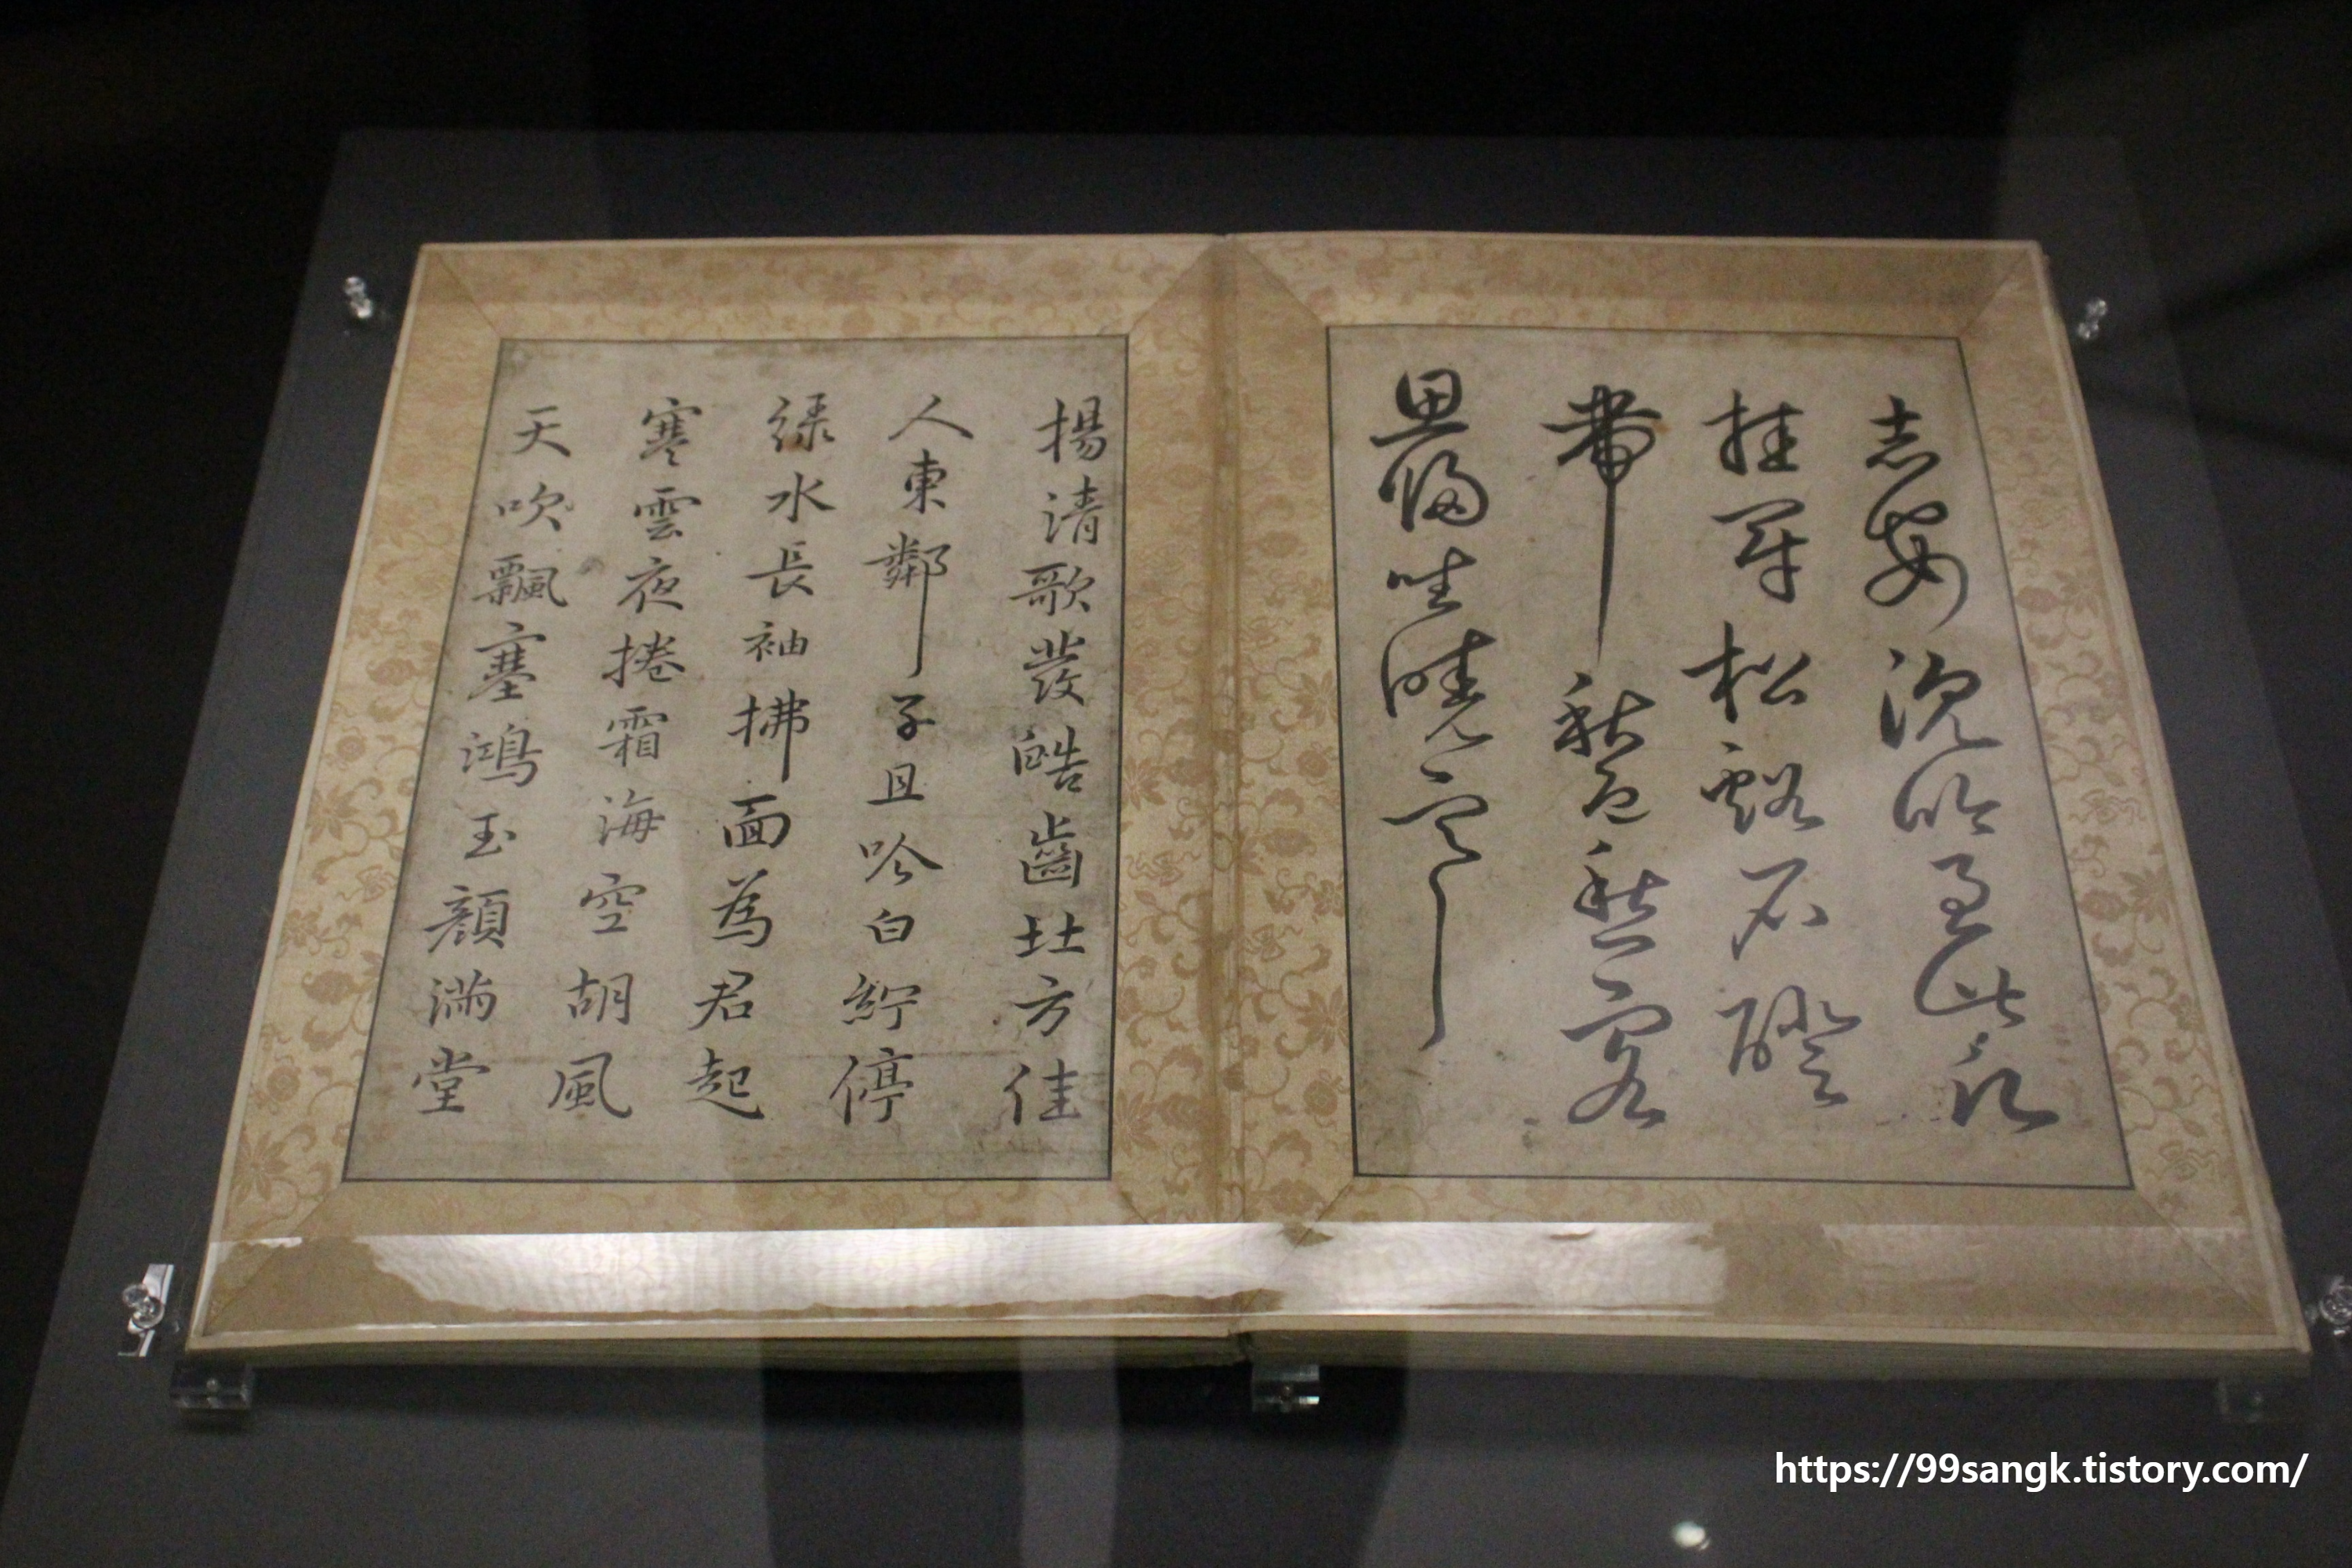 松谿石磴
帶秋色愁客
思歸坐曉寒
揚清歌發皓齒北方佳
人東鄰子且吟白紵停
綠水長袖拂面為君起
寒雲夜捲霜海空胡風
天吹飄塞鴻玉顏滿堂
https://99sangk.tistory.com/